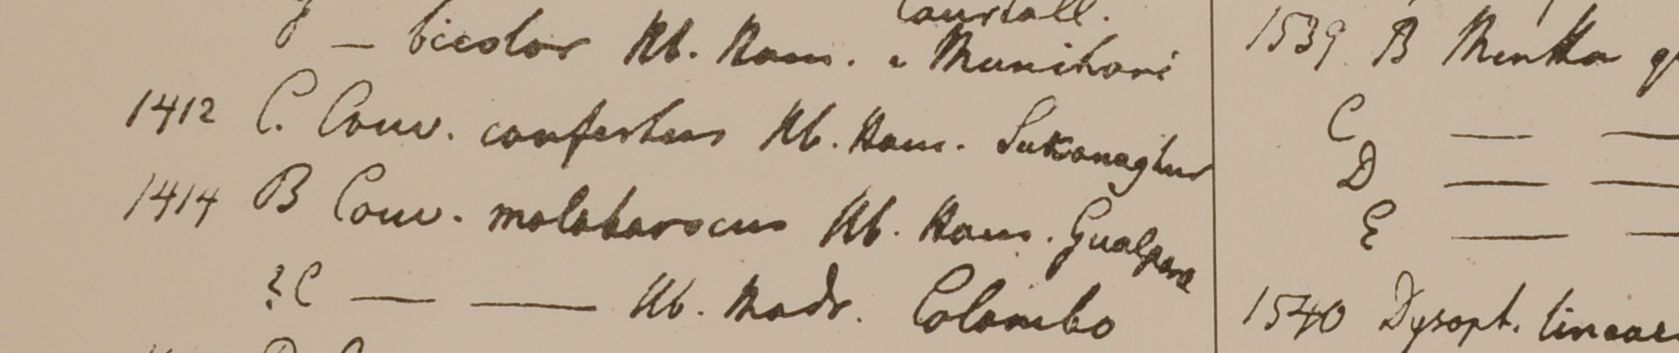 — bicolor Hb. Ham. e Munihari
1412 C. Conv. confertus Hb. Ham. Sukanaghur
1414 B Conv. malabaricus Hb. Ham. Gualpara
? C — — Hb. Madr. Colombo
1539 B Mentha
C — —
D — —
E — —
1540 Dysoph. linear